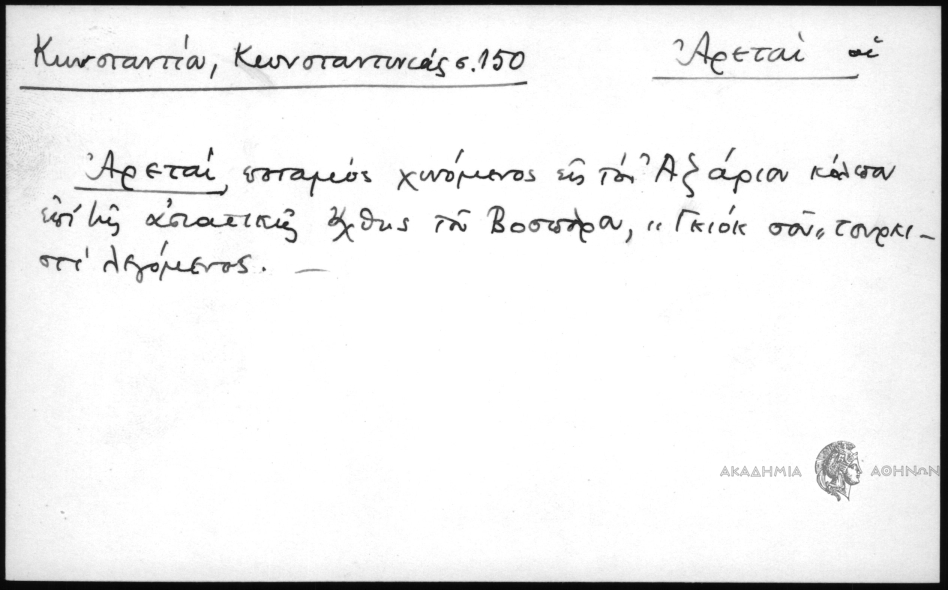 Κωνσταντία, Κωνσταντινιάς σ.150
Ἀρεταὶ αἱ
Ἀρεταί, ποταμὸς χυνόμενος εἰς τὸν Ἀζάριον κόλπον
ἐπὶ τῆς ἀσιατικῆς ὄχθης τοῦ Βοσπόρου, „Γκιὸκ σοῦ„ τουρκι-
στὶ λεγόμενος. —
ΑΚΑΔΗΜΙΑ ΑΘΗΝΩΝ